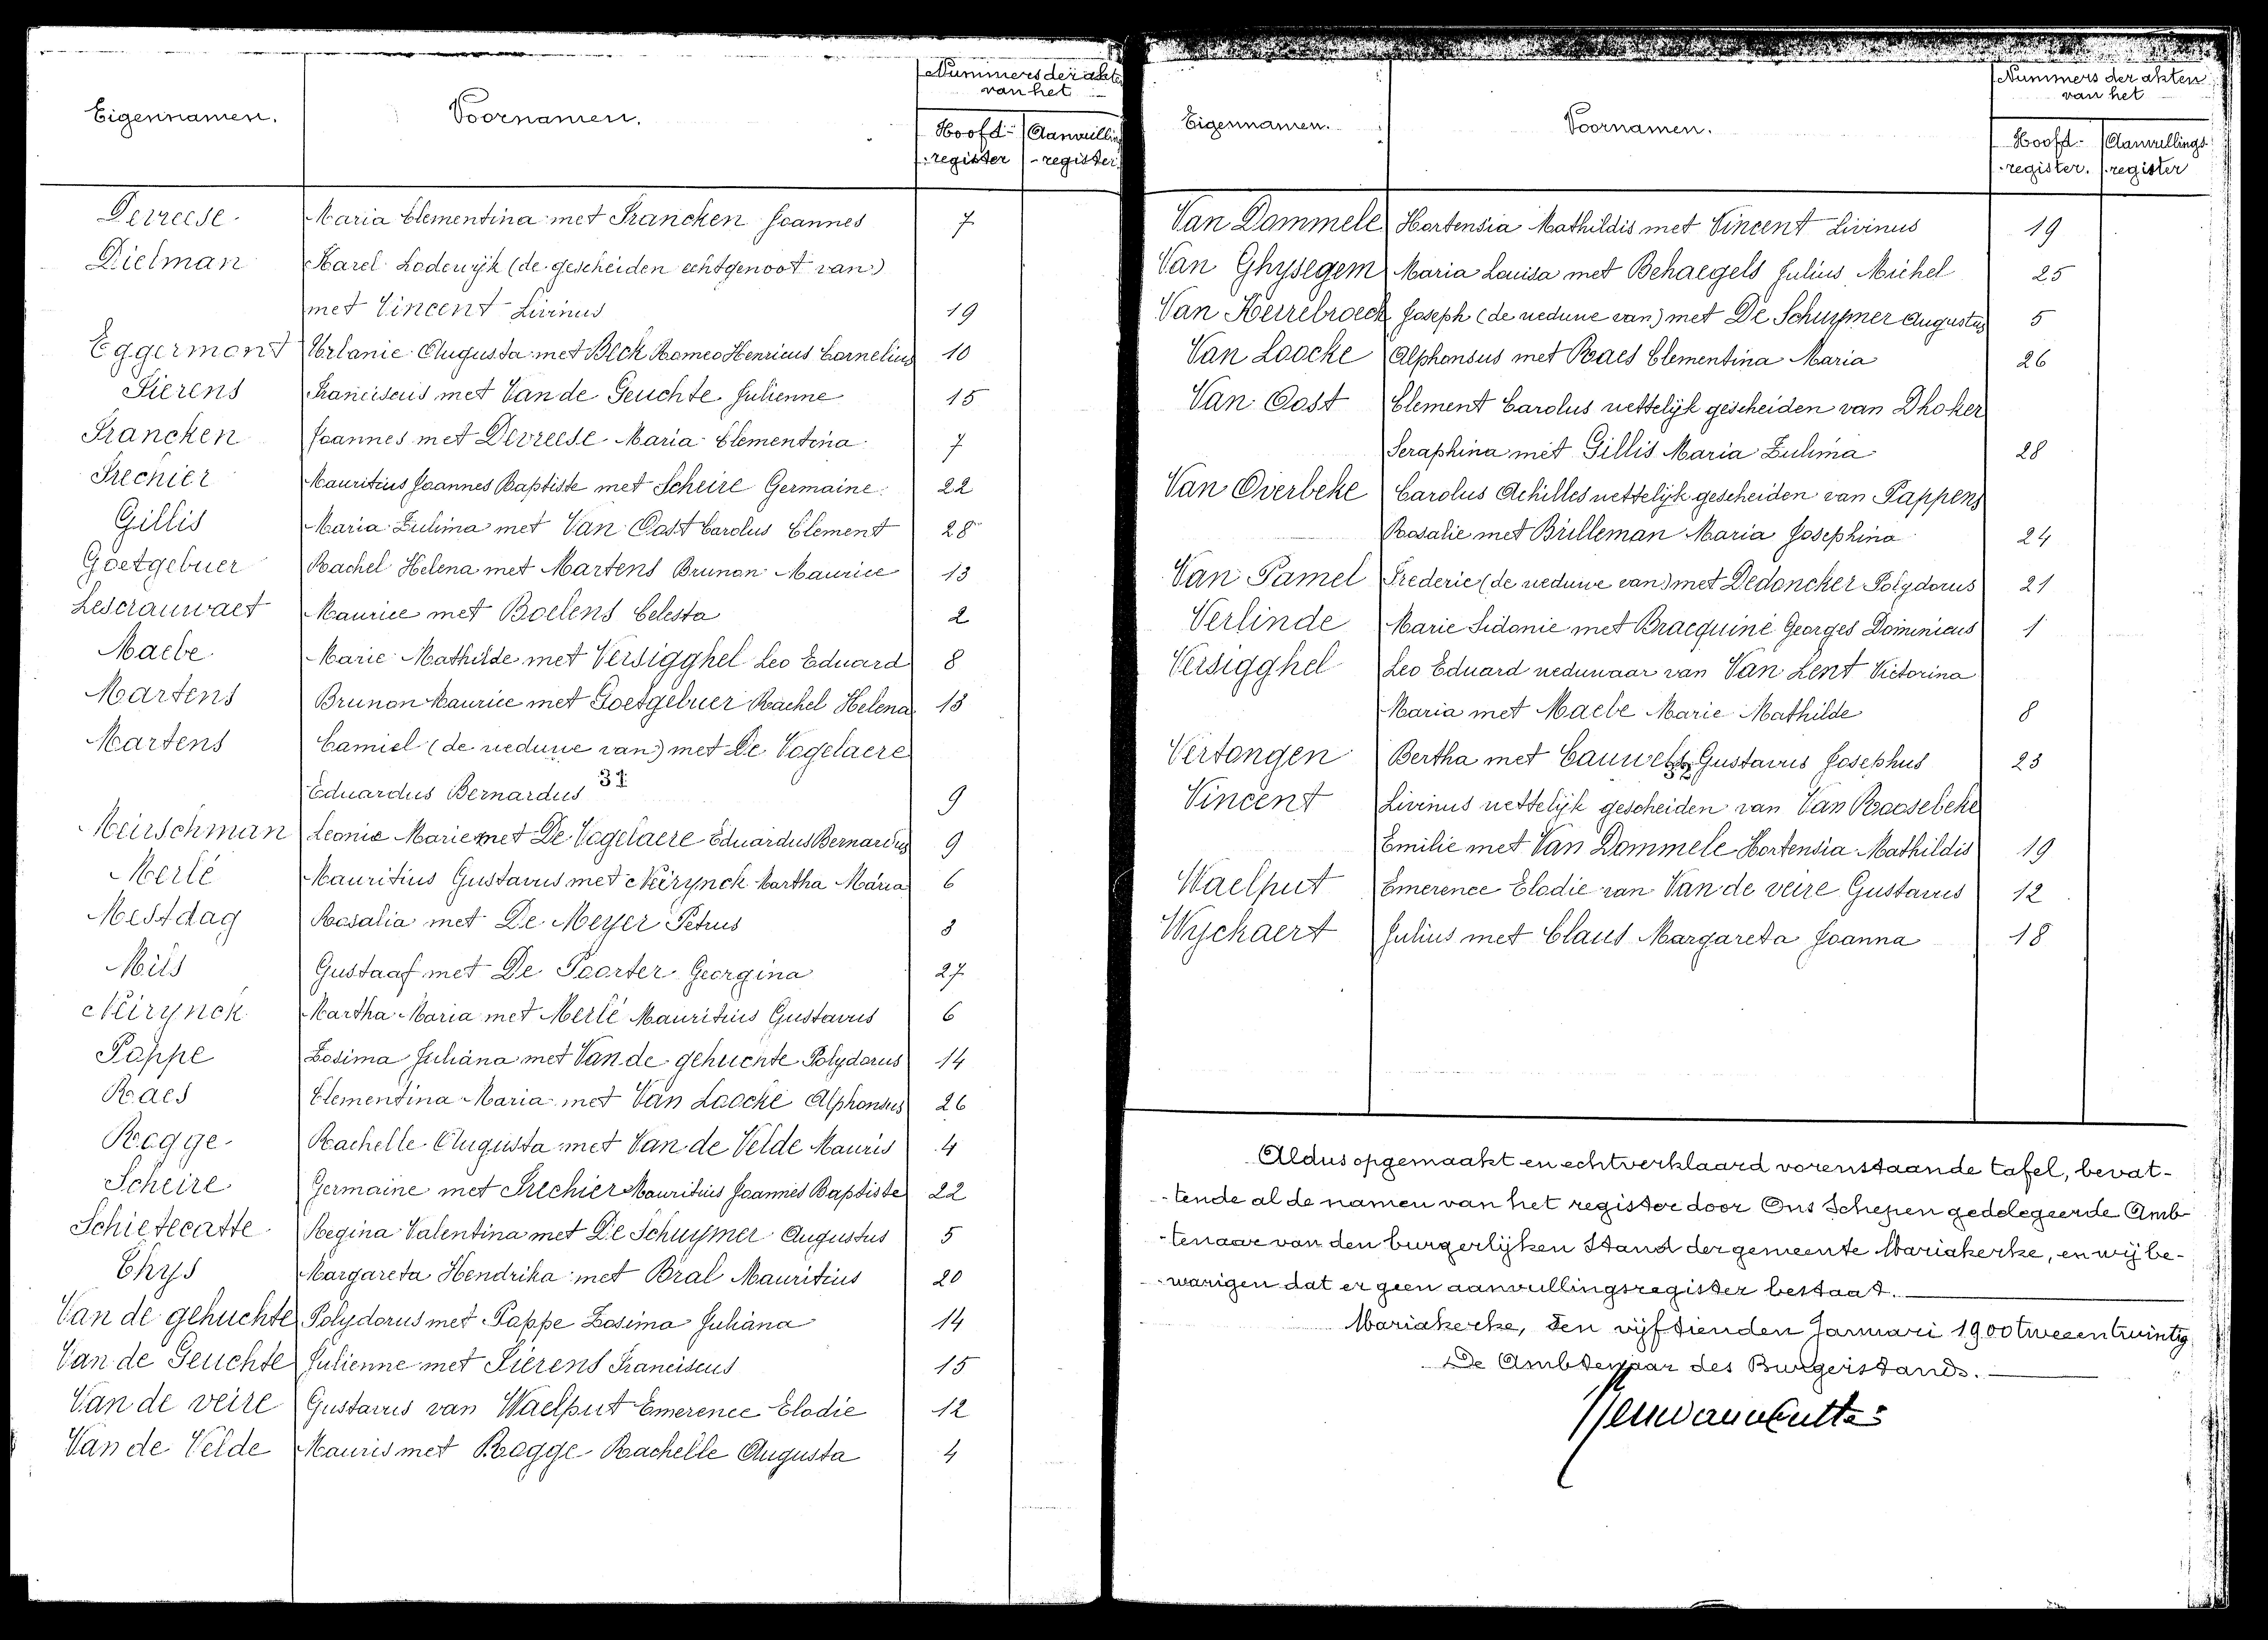 Eigennamen. Voornamen. Nummers der akten
van het
Hoofd- Aanvulling
-register -register
Devreese Maria Clementina met Francken Joannes 7
Dielman Karel Lodewijk (de gescheiden echtgenoot van)
met Vincent Livinus 19
Eggermont Urbanie Augusta met Beck Romeo Henricus Cornelius 10
Fierens Franciscus met Van de Geuchte Julienne 15
Francken Joannes met Devreese Maria Clementina 7
Frechier Mauritius Joannes Baptiste met Scheire Germaine 22
Gillis Maria Zulima met Van Oost Carolus Clement 28
Goetgebuer Rachel Helena met Martens Brunon Maurice 13
Lescrauwaet Maurice met Boelens Celesta 2
Maebe Marie Mathilde met Versigghel Leo Eduard 8
Martens Brunon Maurice met Goetgebuer Rachel Helena 13
Martens Camiel (de weduwe van) met De Vogelaere
Eduardus Bernardus 31 9
Meirschman Leonie Marie met De Vogelaere Eduardus Bernardus 9
Merlé Mauritius Gustavus met Neirynck Martha Maria 6
Mestdag Rosalia met De Meyer Petrus 3
Mils Gustaaf met De Poorter Georgina 27
Neirynck Martha Maria met Merlé Mauritius Gustavus 6
Pappe Zosima Juliana met Van de gehuchte Polydorus 14
Raes Clementina Maria met Van Loocke Alphonsus 26
Rogge Rachelle Augusta met Van de Velde Mauris 4
Scheire Germaine met Frechier Mauritius Joannes Baptiste 22
Schietecatte Regina Valentina met De Schuymer Augustus 5
Thys Margareta Hendrika met Bral Mauritius 20
Van de gehuchte Polydorus met Pappe Zosima Juliana 14
Van de Geuchte Julienne met Fierens Franciscus 15
Van de veire Gustavus van Waelput Emerence Elodie 12
Van de Velde Mauris met Rogge Rachelle Augusta 4
Eigennamen. Voornamen. Nummers der akten
van het
Hoofd- Aanvullings
-register. -register
Van Dommele Hortensia Mathildis met Vincent Livinus 19
Van Ghysegem Maria Louisa met Behaegels Julius Michel 25
Van Kerrebroeck Joseph (de weduwe van) met De Schuymer Augustus 5
Van Loocke Alphonsus met Raes Clementina Maria 26
Van Oost Clement Carolus wettelijk gescheiden van Dhoker
Seraphina met Gillis Maria Zulima 28
Van Overbeke Carolus Achilles wettelijk gescheiden van Pappens
Rosalie met Brilleman Maria Josephina 24
Van Pamel Frederic (de weduwe van) met Dedoncker Polydorus 21
Verlinde Marie Sidonie met Bracquiné Georges Dominicus 1
Versigghel Leo Eduard weduwaar van Van Lent Victorina
Maria met Maebe Marie Mathilde 8
Vertongen Bertha met Cauwels Gustavus Josephus 23
32
Vincent Livinus wettelijk gescheiden van Van Roosebeke
Emilie met Van Dommele Hortensia Mathildis 19
Waelput Emerence Elodie van Van de veire Gustavus 12
Wyckaert Julius met Claus Margareta Joanna 18
Aldus opgemaakt en echtverklaard vorenstaande tafel, bevat-
-tende al de namen van het register door Ons Schepen gedelegeerde Amb-
-tenaar van den burgerlijken Stand der gemeente Mariakerke, en wij be-
-warigen dat er geen aanvullingsregister bestaat.
Mariakerke, den vijftienden Januari 1900 tweeentwintig
De Ambtenaar des Burgerstands.